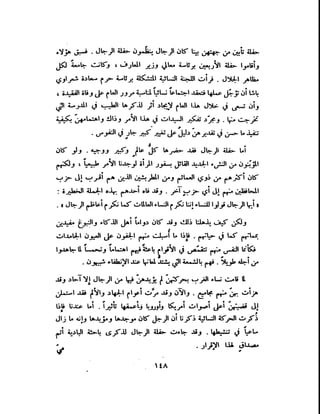 حفلة تأبين من جهتهن بيننا كان الرجال ينظمون الحفلة . فسبق هؤلاء
وأقاموا حفلة الأربعين برئاسة معالي وزير المعارف ، وكانت حفلة لكل
مظاهر الجلال . فرأت اللجنة النسائية المتشكلة برئاسة حرم سعادة شعراوي
باشا أن تؤجل عملها فتعقد اجتماعاً نسائياً لمناسبة مرور العام على وفاة الفقيدة ،
وأن تسعى في خلال هذا العام لإيجاد أثر لذكرى الفقيدة في المدرسة التي
تخرجت منها . ومجرد تفكير السيدات في هذا الأمر وذلك واهتمامهن بكيفية
تنفيذ ما حسن في تقديرهن دليل على تغيير كبير جار في النفوس .
أما حفلة الرجال فقد حضرها كل عالم وكبير ووجيه . ولو كان
المؤبنون من مريدي الجديد القائل بسفور المرأة لوجدنا الأمر طبيعياً ، ولكنهم
كان أكثرهم من ذوي العمائم ومن الذين بين هم أقرب إلى حزب
المحافظين منهم إلى أي حزب آخر . وقد فاه أحدهم بهذه الجملة الخطيرة :
« أيها الرجال قولوا لنسائنا إننا نكرم العالمات كما نكرم أعاظم الرجال » .
وكيف لا يلذ لنا ذلك وقد كان دواماً أهل الذكاء والنبوغ مفيدين
بمماتهم كما في حياتهم . إذا ما أُسبلت منهم الجفون على العيون الجامدات
فكأنما النفس منهم تتقمص في الأقوام باعثة فيهم اهتماماً وتحمساً ما شاهدها
من أجله طويلاً . فهم بالشعلة التي يشتد لهبها عند الانطفاء شبيهون .
لما قامت نساء الغرب بحركتهن لم يعدمن من الرجال من يؤيدهن إلا آحاد وقد
هزأت منهن المجامع . والآن وقد مرت أعوام الجهاد والأمر فقد استمال
إلى قضيتهن أعلى أصوات أمريكا وأوروبا وأصفاها وأعظمها تأثيراً . أما عندنا فإذا
ذُكرت الحركة النسائية ذكرنا أن الرجل كان موجدها ومؤيدها وإنه ما زال
ساعياً في تنشيطها . وقد جاءت حفلة الرجال لذكرى باحثة البادية أتم
مصداق لهذا الإقرار .
١٤٨